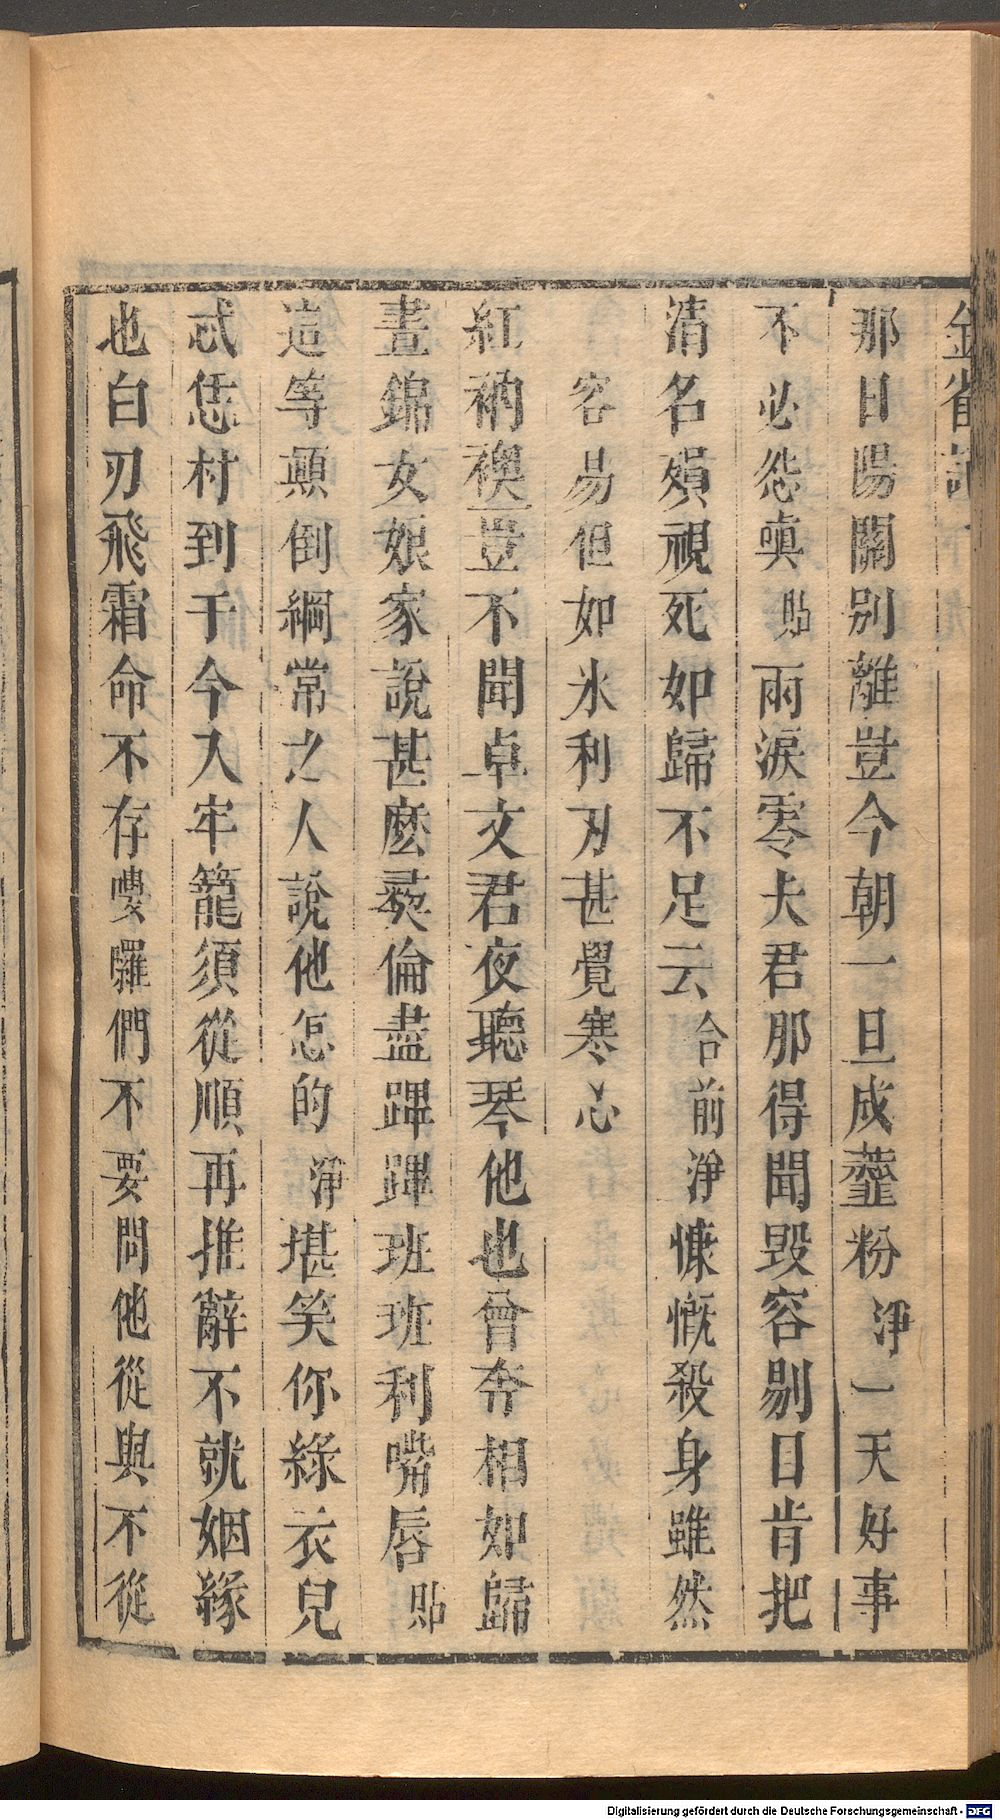 金雀記
那日陽關別離豈今朝一旦成虀粉淨一天好事
不必怨嗔貼雨淚零夫君那得聞毀容剔目肯把
清名殞視死如歸不足云合前淨慷慨殺身雖然
容易但如氷利刃甚覺寒心
紅衲襖豈不聞卓文君夜聽琴他也曾奔相如歸
晝錦女娘家說甚麽彛倫盡蹕蹕班班利嘴唇貼
這等顛倒綱常之人說他怎的淨堪笑你綠衣兒
忒恁村到于今入牢籠須從順再推辭不就姻緣
也白刃飛霜命不存嘍囉們不要問他從與不從
Digitalisierung gefördert durch die Deutsche Forschungsgemeinschaft - DFG